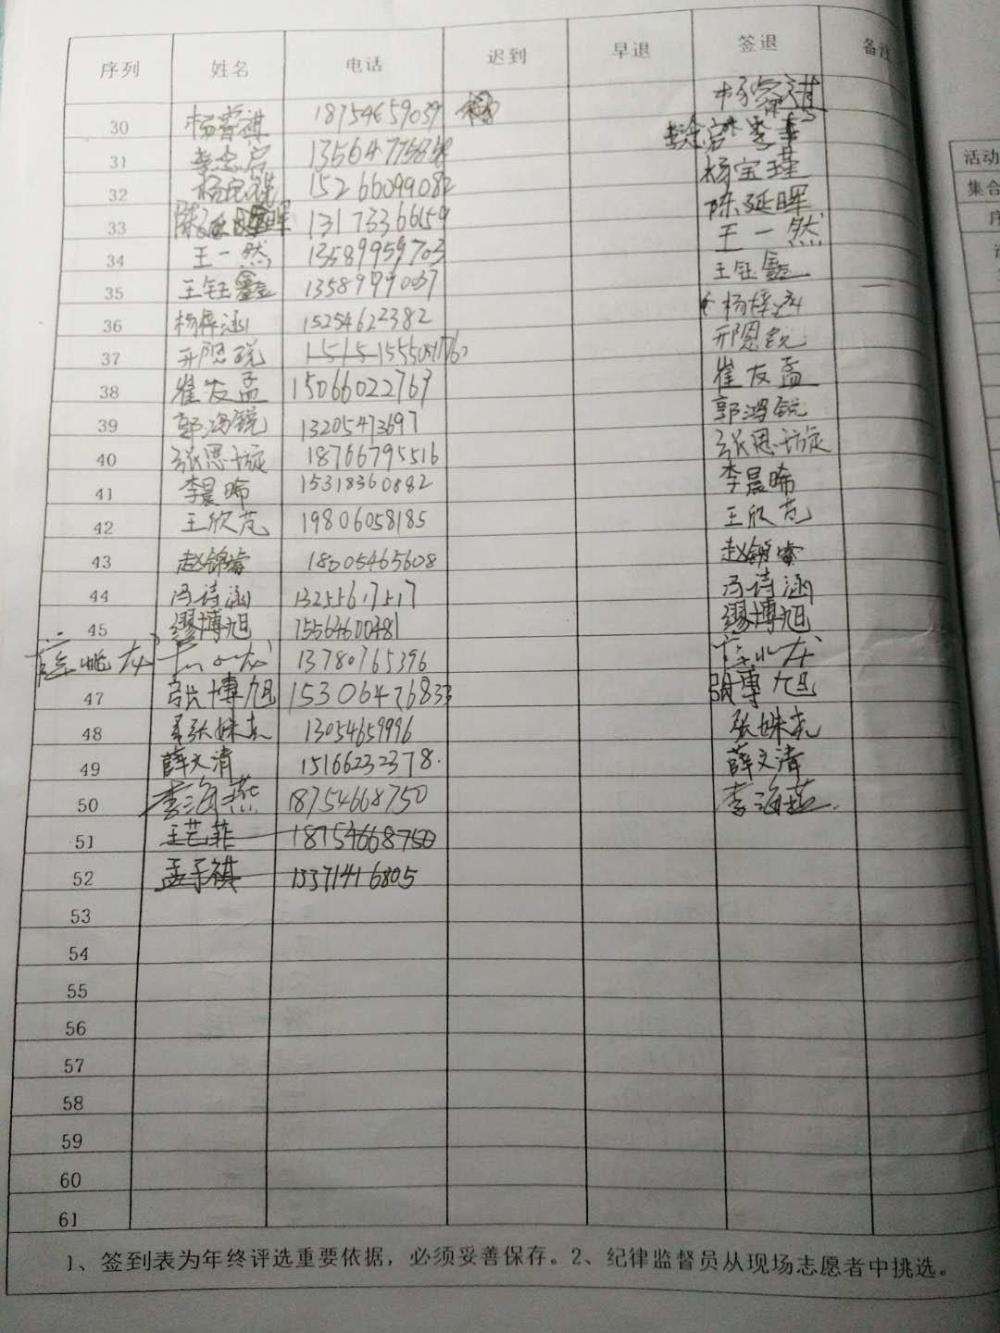 序列 姓名 电话 迟到 早退 签退 备注
30 杨 祺 18754659039 杨 祺
31 李念启 李念启
32 杨宝瑾 15266099082 杨宝瑾
33 陈延晖 13173366159 陈延晖
34 王一然 13589959703 王一然
35 王钰鑫 13589999037 王钰鑫
36 杨梓涵 15254622382 杨梓涵
37 邢恩锐 邢恩锐
38 崔友孟 15066022767 崔友孟
39 郭鸿锐 13205473697 郭鸿锐
40 张恩旋 18766795516 张恩旋
41 李晨晞 15318360882 李晨晞
42 王欣芃 19806058185 王欣芃
43 赵锦睿 18005465608 赵锦睿
44 冯诗涵 13255617517 冯诗涵
45 缪博旭 15564600481 缪博旭
13780765396
47 张博旭 15306476833 张博旭
48 张姝尧 13054659996 张姝尧
49 薛文清 15166232378 薛文清
50 李海燕 18754668750 李海燕
51 王艺菲 18754668750
52 孟子祺 13371416805
53
54
55
56
57
58
59
60
61
1、签到表为年终评选重要依据，必须妥善保存。2、纪律监督员从现场志愿者中挑选。
活动
集合